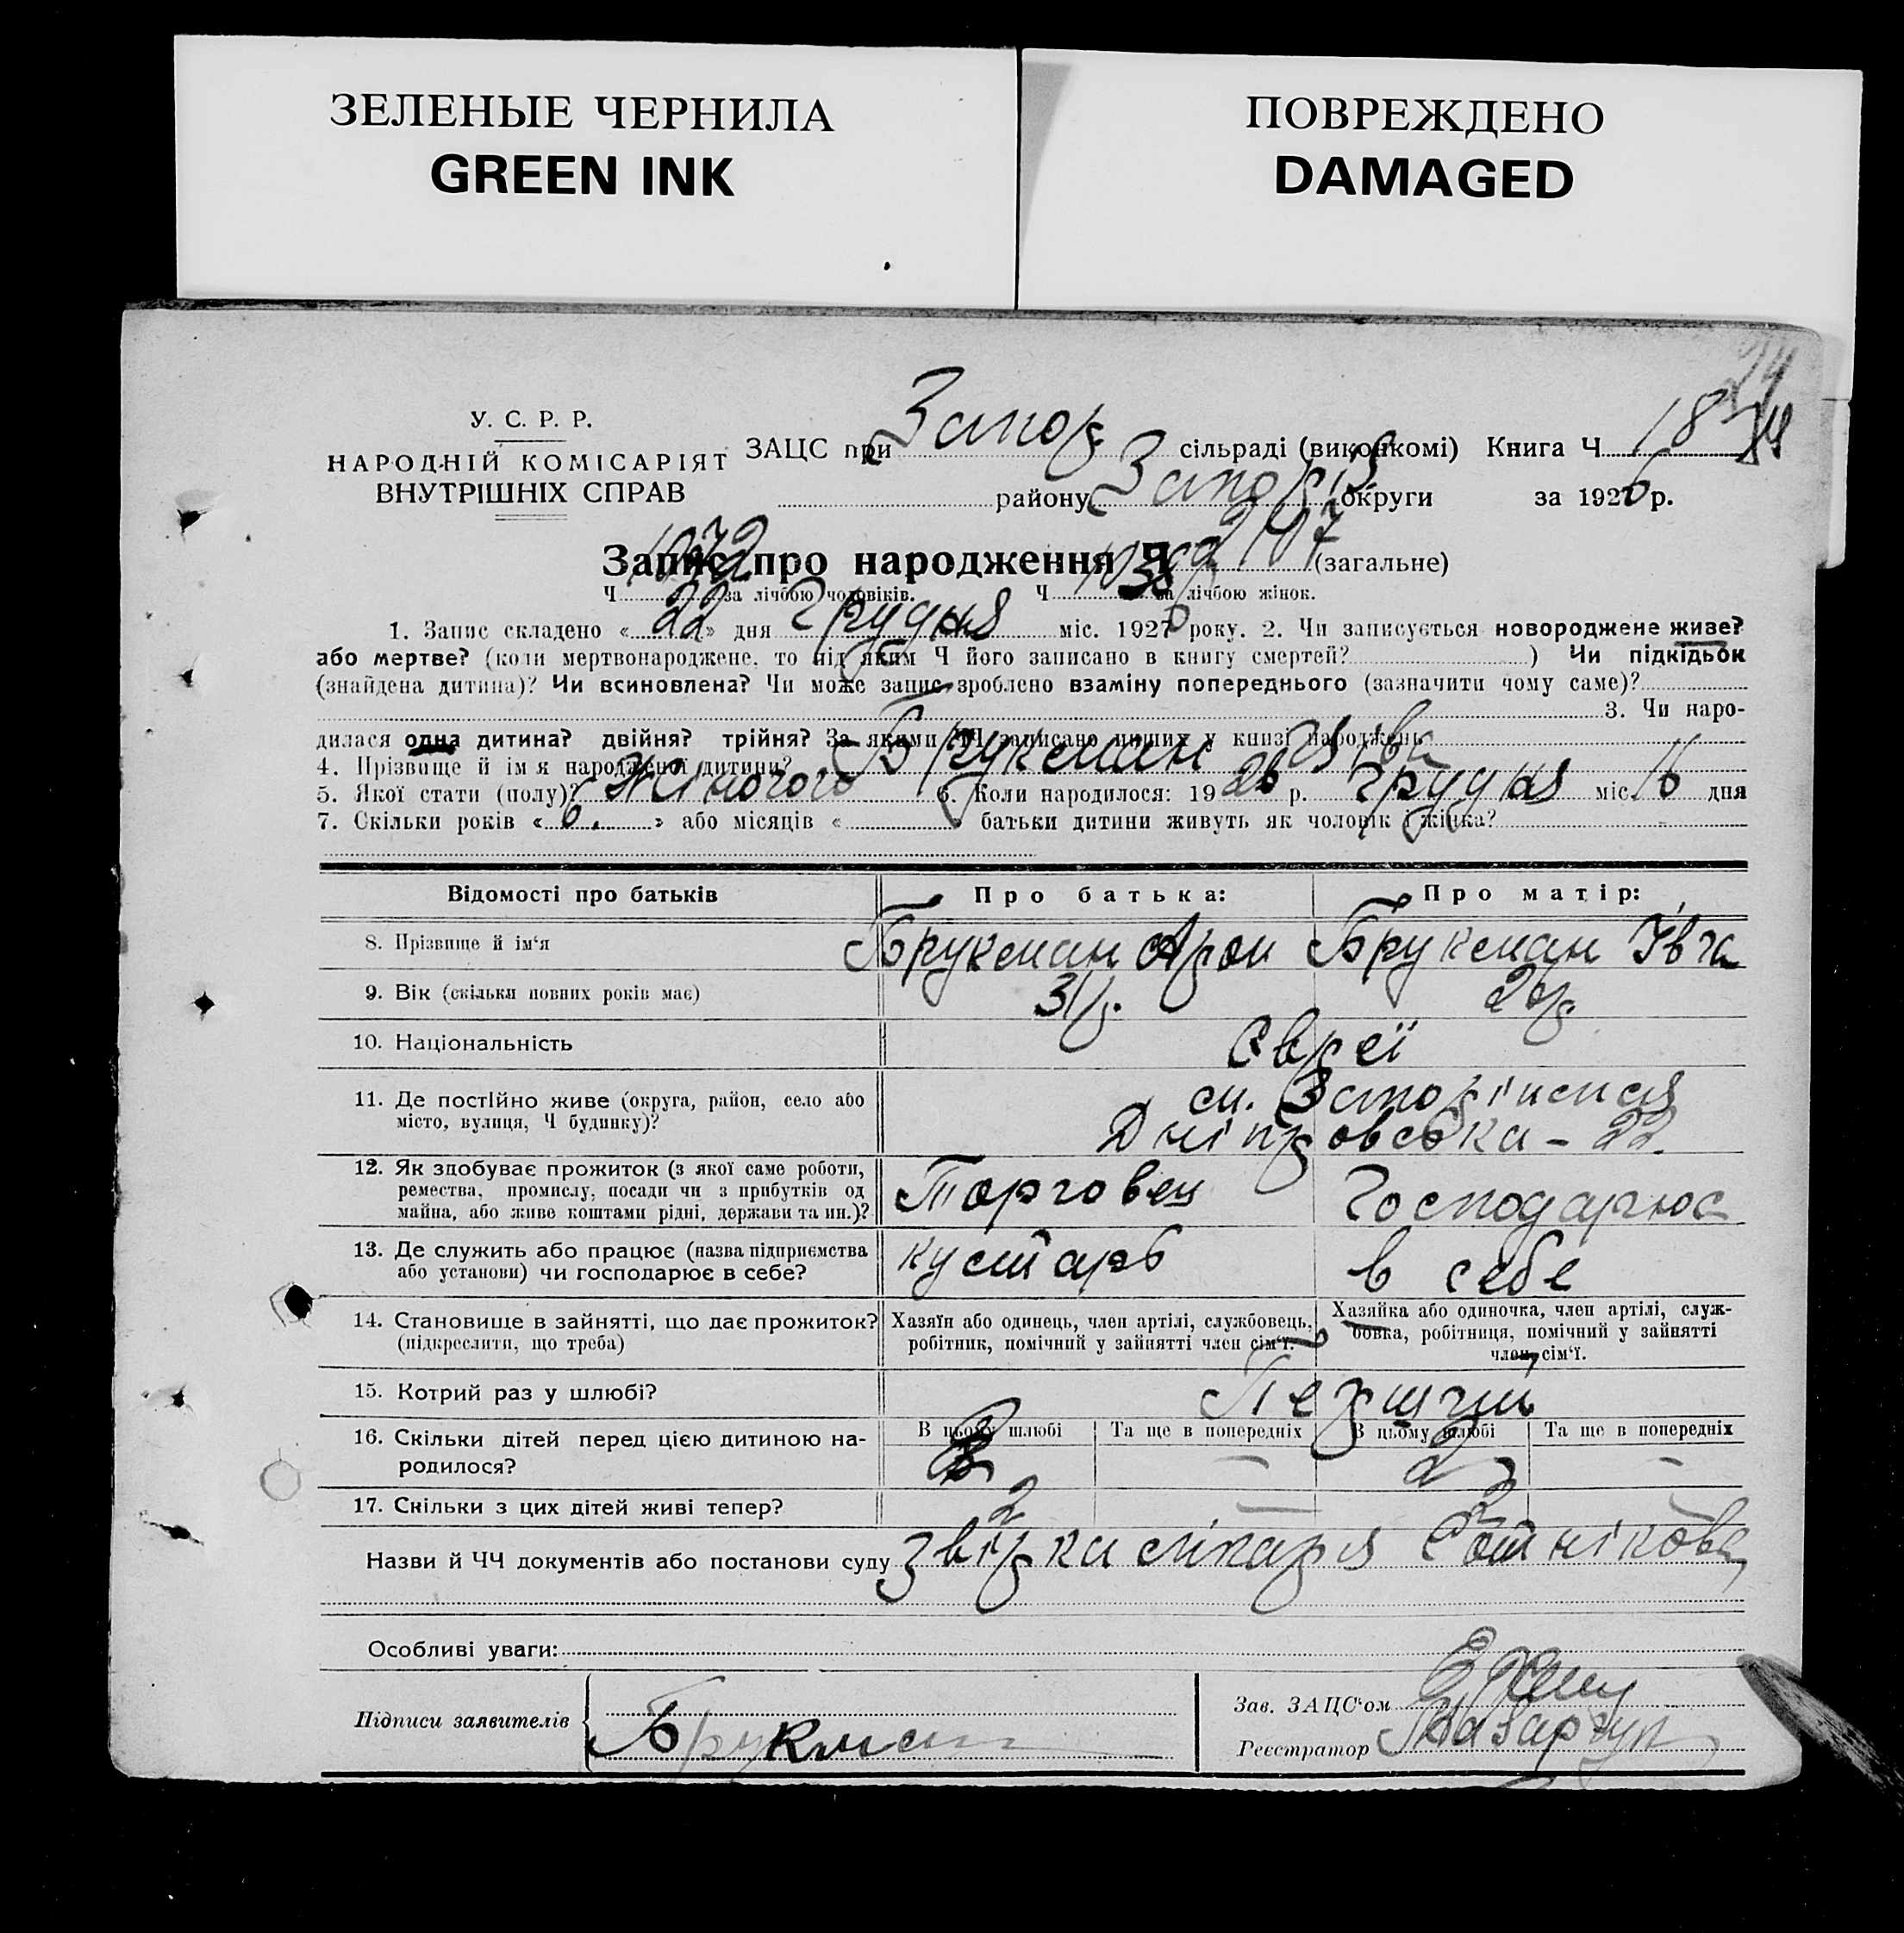 ЗЕЛЕНЫЕ ЧЕРНИЛА
GREEN INK
ПОВРЕЖДЕНО
DAMAGED
У. С. Р. Р.
НАРОДНІЙ КОМІСАРІЯТ
ВНУТРІШНІХ СПРАВ
ЗАЦС при Запор сільраді (виконкомі) Книга Ч 18
району Запоріз округи за 1926 р.
Запис про народження Ч 2107 (загальне)
Ч за лічбою чоловіків. Ч за лічбою жінок.
1. Запис складено « 22 » дня грудня міс. 1926 року. 2. Чи записується новороджене живе?
або мертве? (коли мертвонароджене, то під яким Ч його записано в книгу смертей? ) Чи підкідьок
(знайдена дитина)? Чи всиновлена? Чи може запис зроблено взаміну попереднього (зазначити чому саме)?
3. Чи наро-
дилася одна дитина? двійня? трійня? За якими ЧЧ записано инших у книзі народжень
4. Прізвище й ім'я народженої дитини? Брукман
5. Якої стати (полу)? Жіночого 6. Коли народилося: 1926 р. грудня міс. 16 дня
7. Скільки років « 6. » або місяців « » батьки дитини живуть як чоловік і жінка?
Відомості про батьків
Про батька:
Про матір:
8. Прізвище й ім'я
Брукман Арон
Брукман Івга
9. Вік (скільки повних років має)
31 р.
26 р.
10. Національність
Євреї
11. Де постійно живе (округа, район, село або
місто, вулиця, Ч будинку)?
м. Запоріжжя
Дніпровська – 22.
12. Як здобуває прожиток (з якої саме роботи,
ремества, промислу, посади чи з прибутків од
майна, або живе коштами рідні, держави та ин.)?
Торговец
Господарює
13. Де служить або працює (назва підприємства
або установи) чи господарює в себе?
кустарь
в себе
14. Становище в зайнятті, що дає прожиток?
(підкреслити, що треба)
Хазяїн або одинець, член артілі, службовець,
робітник, помічний у зайнятті член сім'ї.
Хазяйка або одиночка, член артілі, служ-
бовка, робітниця, помічний у зайнятті
член сім'ї.
15. Котрий раз у шлюбі?
Перший
16. Скільки дітей перед цією дитиною на-
родилося?
В цьому шлюбі
Та ще в попередніх
В цьому шлюбі
Та ще в попередніх
2
–
2
–
17. Скільки з цих дітей живі тепер?
2
–
2
–
Назви й ЧЧ документів або постанови суду звірка лікаря Сотнікова
Особливі уваги:
Підписи заявителів
Брукман
Зав. ЗАЦС'ом
Реєстратор